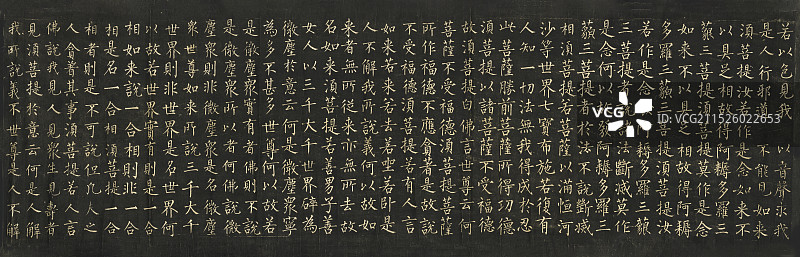 若以色見我 以音聲求我
是人行邪道 不能見如來
須菩提汝若作是念如來不
以具足相故得阿耨多羅三
藐三菩提須菩提莫作是念
如來不以具足相故得阿耨
多羅三藐三菩提須菩提汝
若作是念 耨多羅三藐
三菩提者 法斷滅莫作
是念何以 阿耨多羅三
藐三菩提者於法不說斷滅
相須菩提若菩薩以滿恒河
沙等世界七寶布施若復有
人知一切法無我得成於忍
此菩薩勝前菩薩所得功德
須菩提以諸菩薩不受福德
故須菩提白佛言世尊云何
菩薩不受福德須菩提菩薩
所作福德不應貪著是故說
不受福德須菩提若有人言
如來若來若去若坐若臥是
人不解我所說義何以故如
來者無所從來亦無所去故
名如來須菩提若善男子善
女人以三千大千世界碎為
微塵於意云何是微塵眾寧
為多不甚多世尊何以故若
是微塵眾實有者佛則不說
是微塵眾所以者何佛說微
塵眾則非微塵眾是名微塵
眾世尊如來所說三千大千
世界則非世界是名世界何
以故若世界實有則是一合
相如來說一合相則非一合
相是名一合相須菩提一合
相者則是不可說但凡夫之
人貪著其事須菩提若人言
佛說我見人見眾生見壽者
見須菩提於意云何是人解
我所說義不世尊是人不解
VCG
VCG211526022653